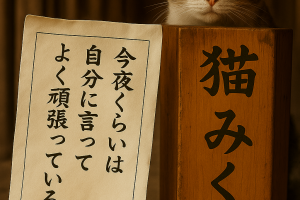 今夜くらいは
自分に言って
よく頑張っている
猫みく